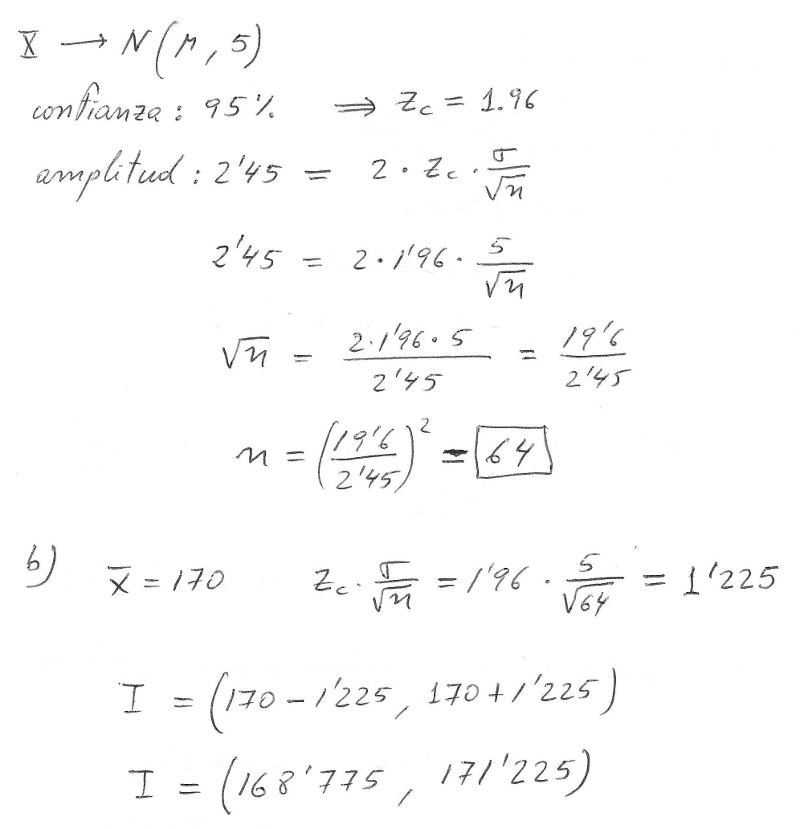 X → N(μ, 5)
confianza: 95% ⇒ Zc = 1.96
amplitud: 2'45 = 2 · Zc · σ/√n
2'45 = 2 · 1'96 · 5/√n
√n = 2·1'96·5/2'45 = 19'6/2'45
n = (19'6/2'45)² = 64
b) x̄ = 170 Zc · σ/√n = 1'96 · 5/√64 = 1'225
I = (170 - 1'225, 170 + 1'225)
I = (168'775, 171'225)